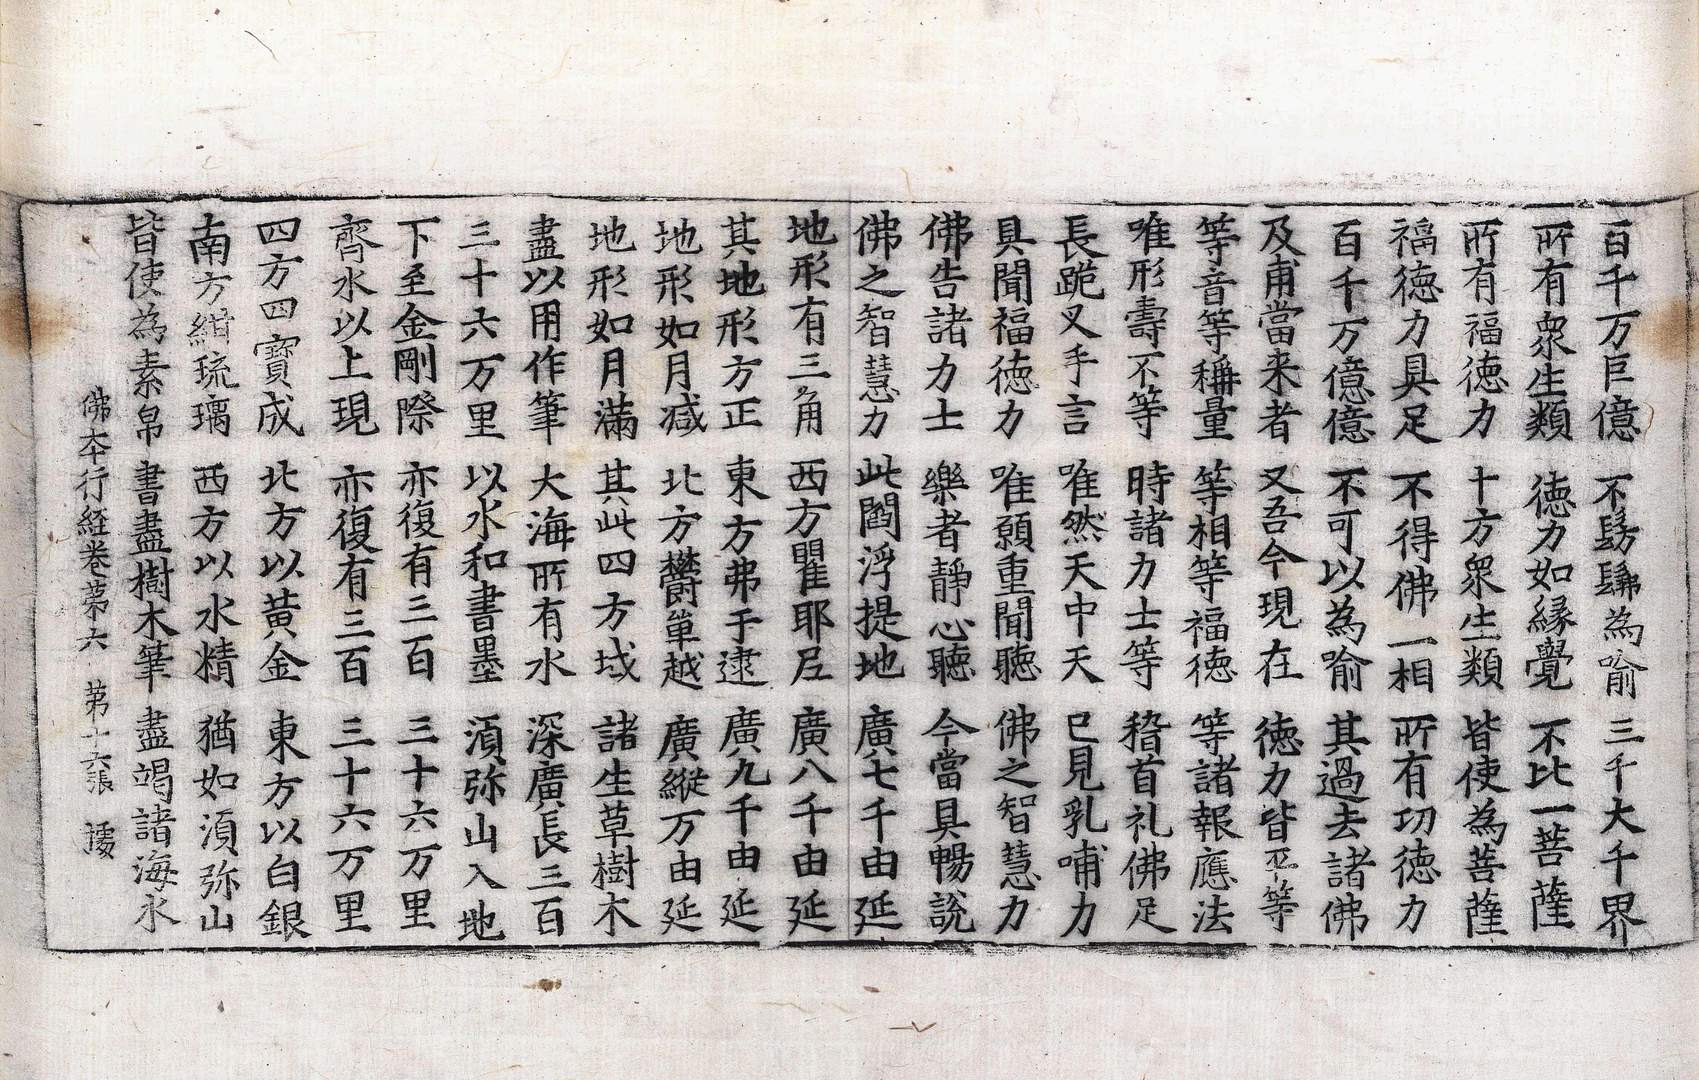 百千万巨億　不髣髴為喻　三千大千界
所有衆生類　徳力如縁覺　不比一菩薩
所有福徳力　十方衆生類　皆使為菩薩
福徳力具足　不得佛一相　所有功徳力
百千万億億　不可以為喻　其過去諸佛
及甫當来者　又吾今現在　徳力皆平等
等音等稱量　等相等福徳　等諸報應法
唯形壽不等　時諸力士等　稽首礼佛足
長跪叉手言　唯然天中天　已見乳哺力
具聞福徳力　唯願重聞聽　佛之智慧力
佛告諸力士　樂者靜心聽　今當具暢說
佛之智慧力　此閻浮提地　廣七千由延
地形有三角　西方瞿耶尼　廣八千由延
其地形方正　東方弗于逮　廣九千由延
地形如月减　北方欝單越　廣縱万由延
地形如月滿　其此四方域　諸生草樹木
盡以用作筆　大海所有水　深廣長三百
三十六万里　以水和書墨　湏弥山入地
下至金剛際　亦復有三百　三十六万里
齊水以上現　亦復有三百　三十六万里
四方四寳成　北方以黃金　東方以白銀
南方紺琉璃　西方以水精　猶如湏弥山
皆使為素帛　書盡樹木筆　盡竭諸海水
佛本行経卷第六　第十六張